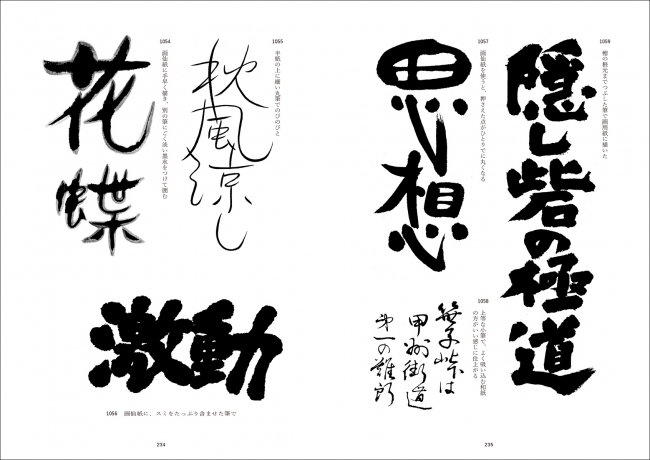 1054
画仙紙に手早く描き、別の筆にごく淡い墨水をつけて囲む
花蝶
1055
半紙の上に細い丸筆でのびのびと
枕風涼し
激動
1056 画仙紙に、スミをたっぷり含ませた筆で
234
1057
画仙紙を使うと、押さえた点がひとりでに丸くなる
思想
1058
上等な小筆で、よく吸い込む和紙
の方がいい感じに仕上がる
笹子峠は
甲州街道
第一の難所
1059
穂の根元までつぶした筆で画用紙に描いた
隠し砦の極道
235